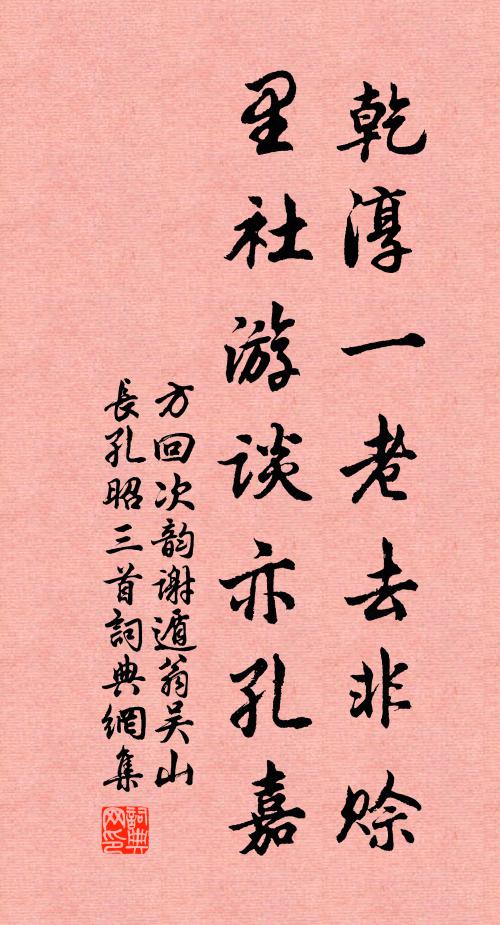 乾淳一老去非赊
里社游谈亦孔嘉
方回次韵谢遁翁吴山
長孔昭三首詞典網集
詞典网印